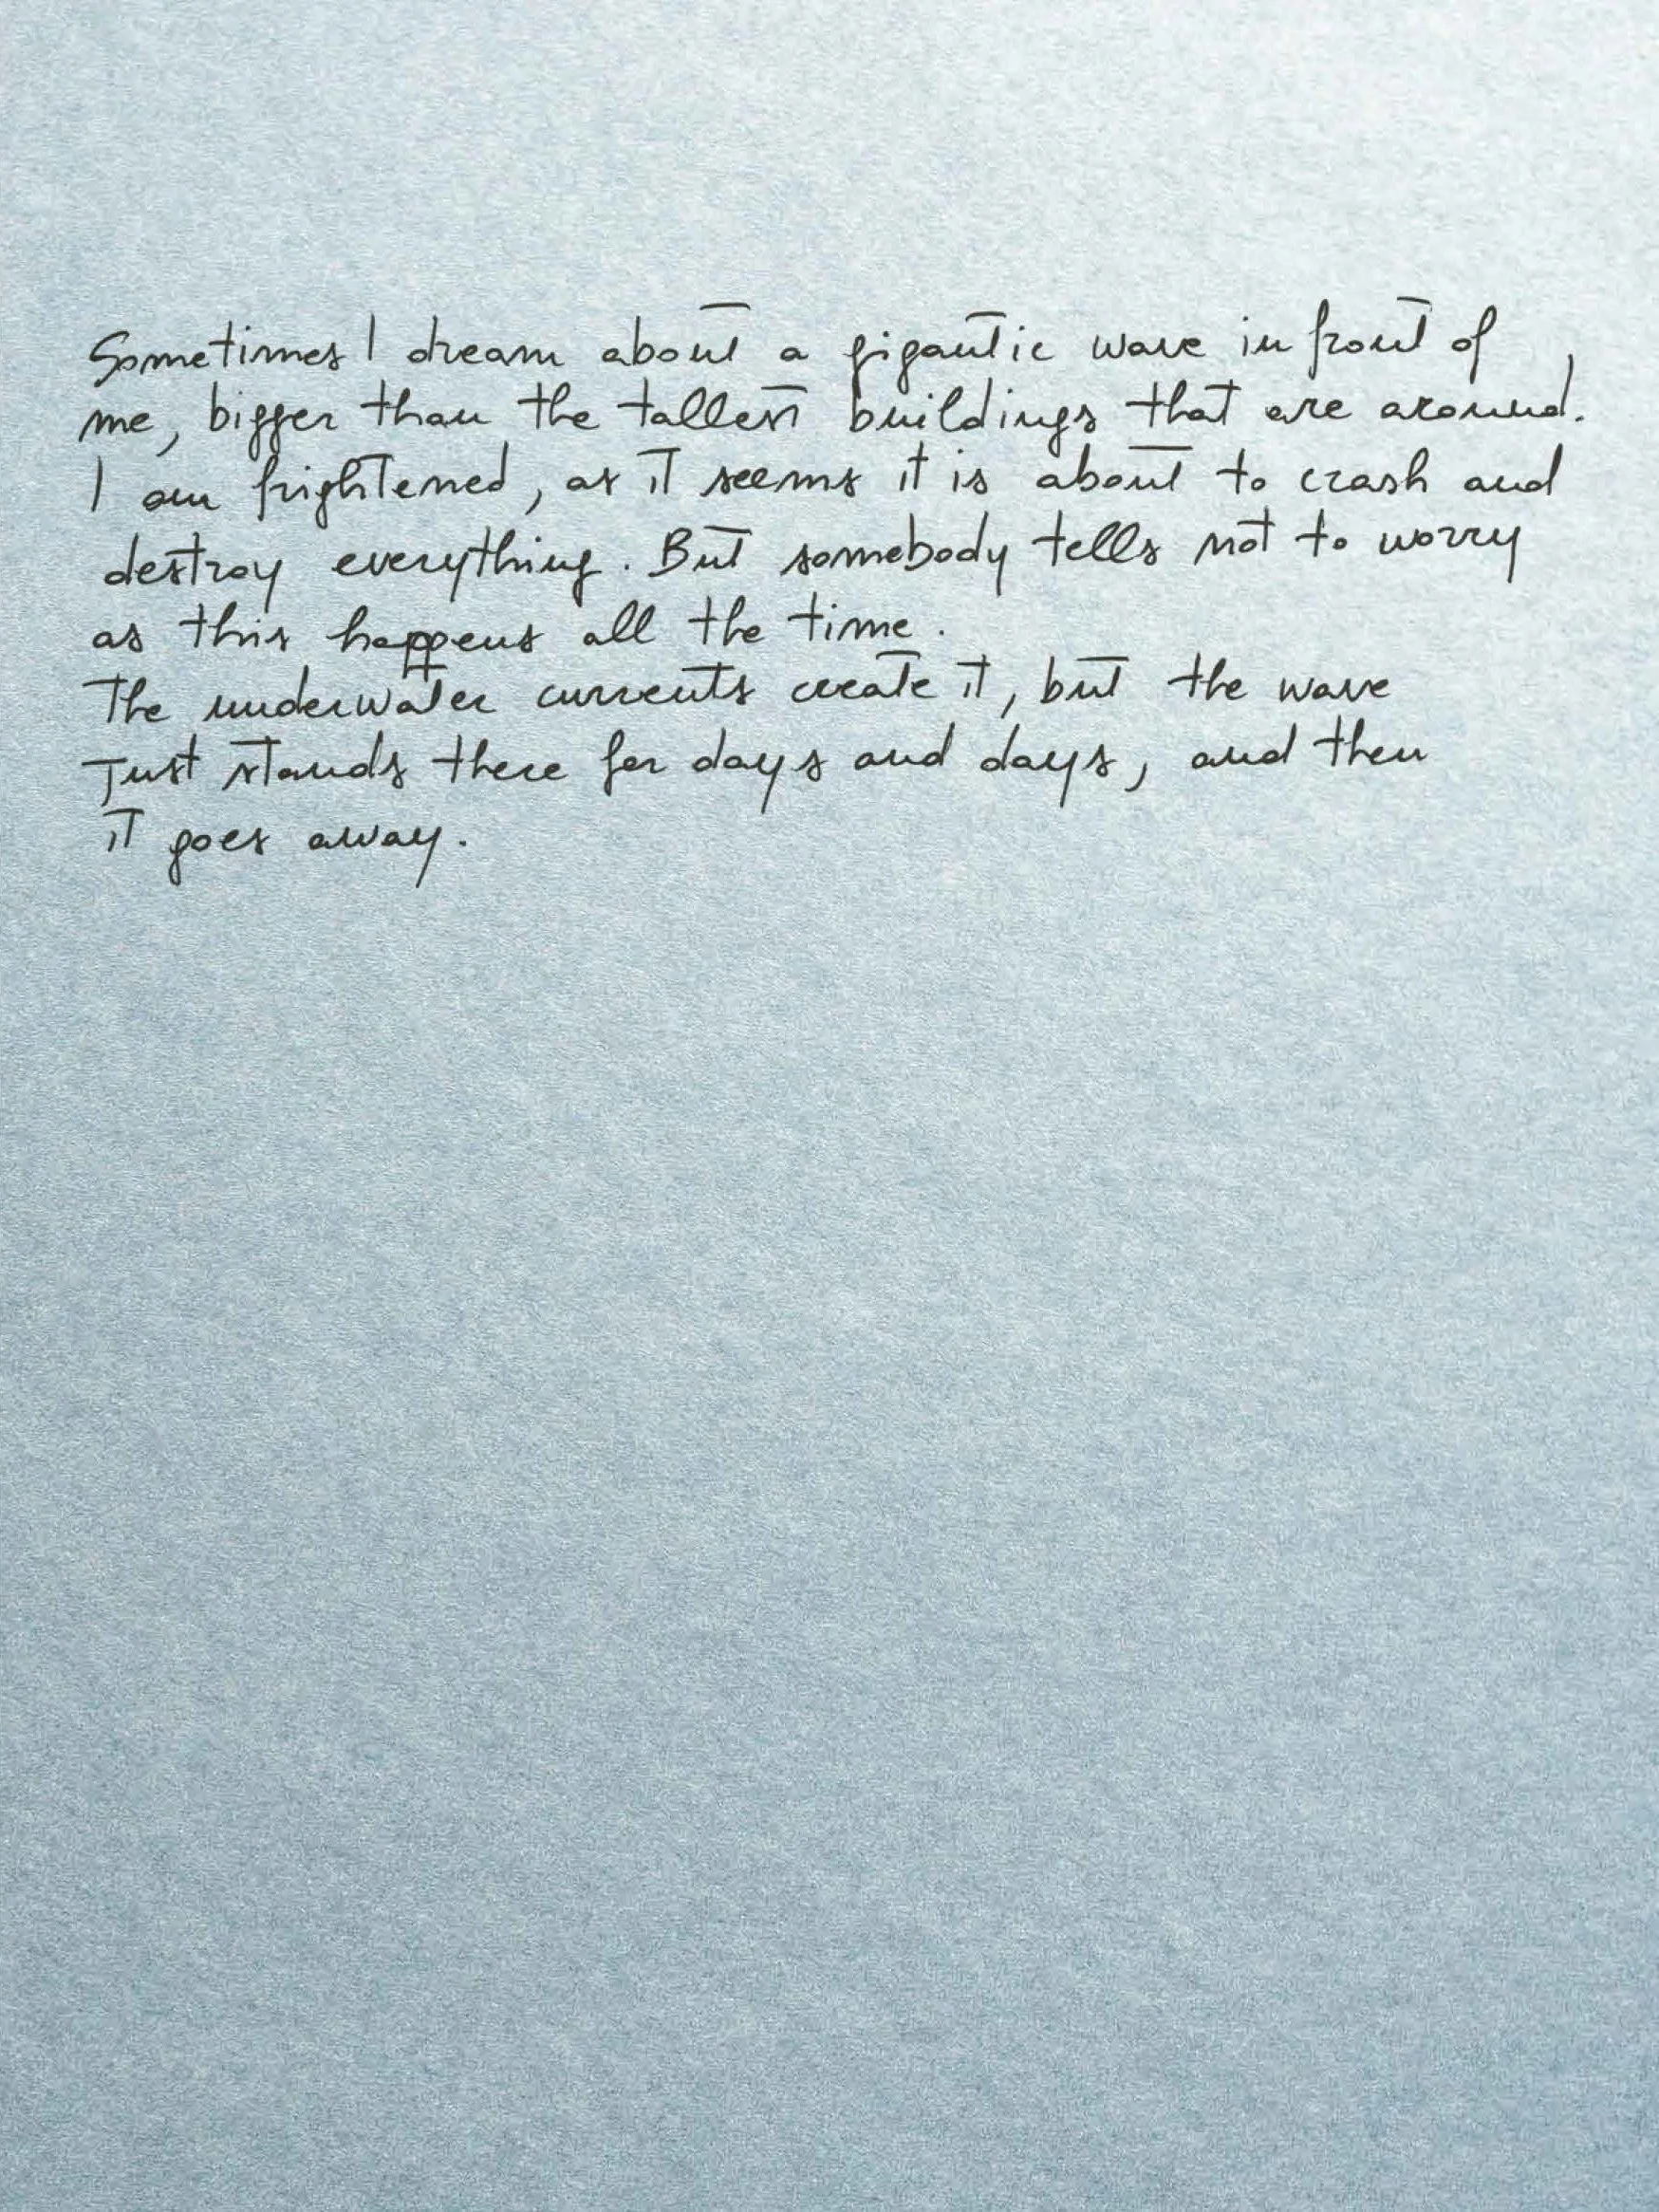 Sometimes I dream about a gigantic wave in front of
me, bigger than the tallest buildings that are around.
I am frightened, as it seems it is about to crash and
destroy everything. But somebody tells not to worry
as this happens all the time.
The underwater currents create it, but the wave
Just stands there for days and days, and then
it goes away.